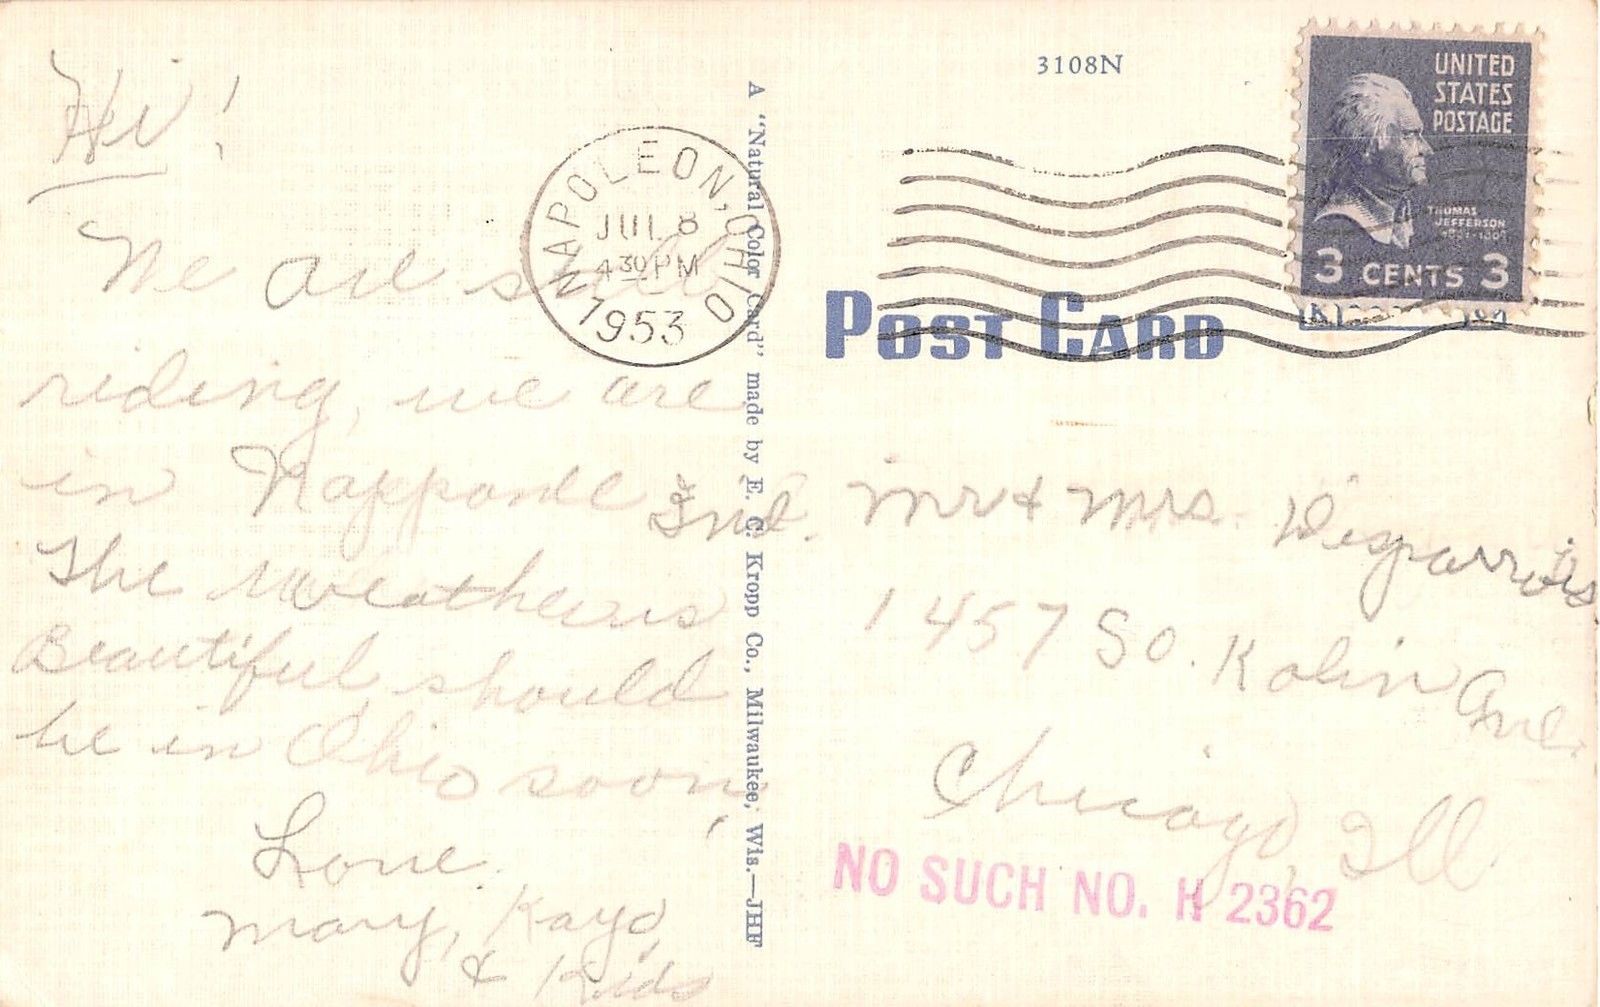 Hi!
We are still
riding, we are
in Nappanee Ind.
The weather is
Beautiful should
be in Ohio soon,
Love
Mary, Kayo,
& Kids
NAPOLEON, OHIO
JUL 8
4 30 PM
1953
A "Natural Color Card" made by E. C. Kropp Co., Milwaukee, Wis.—JHF
3108N
UNITED
STATES
POSTAGE
THOMAS
JEFFERSON
3 CENTS 3
POST CARD
Mr & Mrs.
1457 So. Kolin Ave.
Chicago, Ill
NO SUCH NO. H 2362